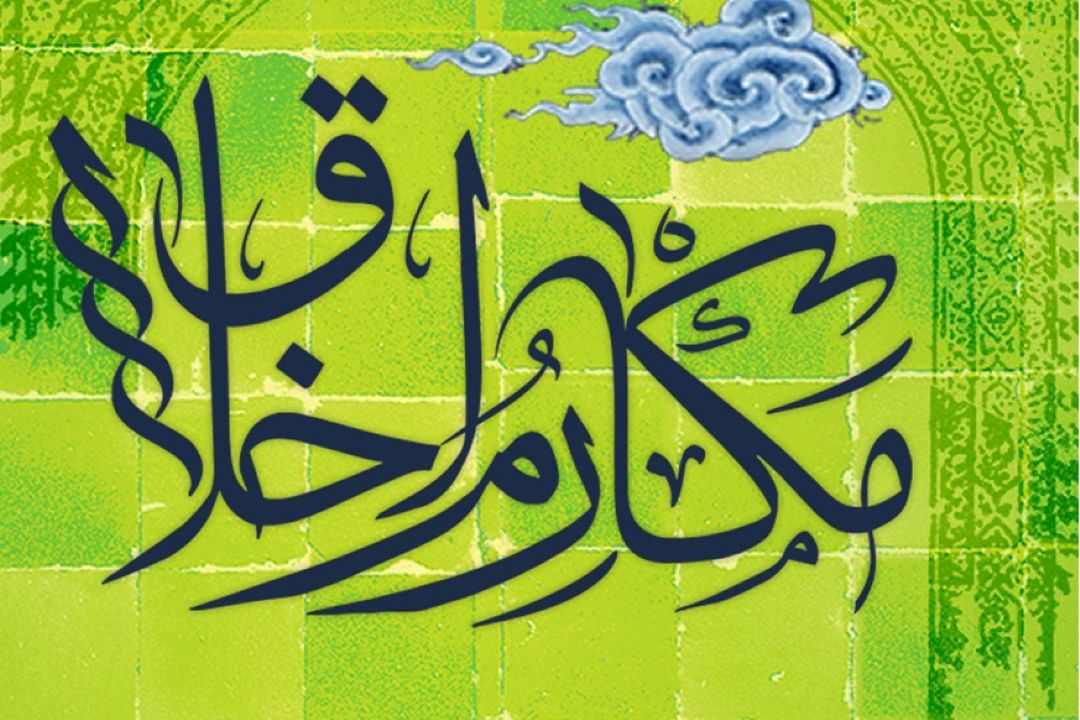 مکارمُ اخلاق